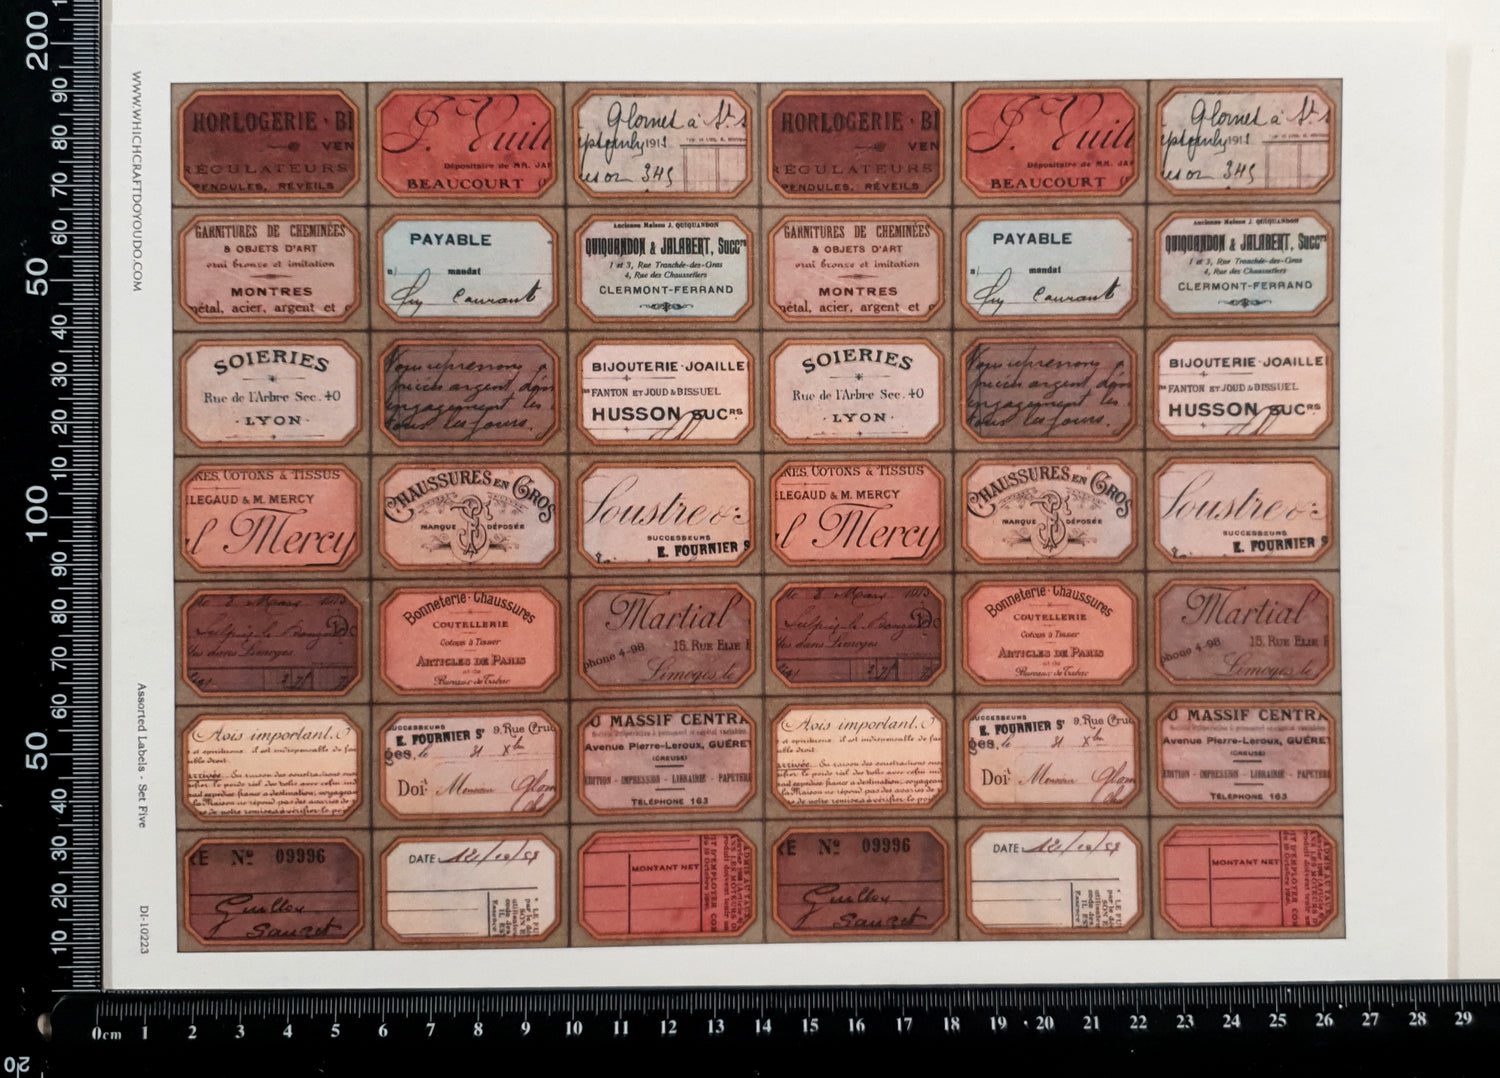 WWW.WHICHCRAFTDOYOUDO.COM
Assorted Labels - Set Five
DI-10223
HORLOGERIE · BI
VEN
RÉGULATEURS
PENDULES, RÉVEILS
J. Vuill
Dépositaire de MM. JAP
BEAUCOURT (
Glomet à St. s
1911
345
HORLOGERIE · BI
VEN
RÉGULATEURS
PENDULES, RÉVEILS
J. Vuill
Dépositaire de MM. JAP
BEAUCOURT (
Glomet à St. s
1911
345
GARNITURES DE CHEMINÉES
& OBJETS D'ART
vrai bronze et imitation
MONTRES
métal, acier, argent et o
PAYABLE
mandat
Courant
Ancienne Maison J. QUIQUANDON
QUIQUANDON & JALABERT, Succrs
1 et 3, Rue Tranchée-des-Gras
4, Rue des Chaussetiers
CLERMONT-FERRAND
GARNITURES DE CHEMINÉES
& OBJETS D'ART
vrai bronze et imitation
MONTRES
métal, acier, argent et o
PAYABLE
mandat
Courant
Ancienne Maison J. QUIQUANDON
QUIQUANDON & JALABERT, Succrs
1 et 3, Rue Tranchée-des-Gras
4, Rue des Chaussetiers
CLERMONT-FERRAND
SOIERIES
Rue de l'Arbre Sec. 40
· LYON ·
Nous reprenons
pièces argent, dans
engagement les
tous les jours.
BIJOUTERIE · JOAILLE
FANTON ET JOUD & BISSUEL
HUSSON SUCRS
SOIERIES
Rue de l'Arbre Sec. 40
· LYON ·
Nous reprenons
pièces argent, dans
engagement les
tous les jours.
BIJOUTERIE · JOAILLE
FANTON ET JOUD & BISSUEL
HUSSON SUCRS
NES, COTONS & TISSUS
LEGAUD & M. MERCY
l Mercy
CHAUSSURES EN GROS
MARQUE DÉPOSÉE
Loustre &
SUCCESSEURS
E. FOURNIER S
NES, COTONS & TISSUS
LEGAUD & M. MERCY
l Mercy
CHAUSSURES EN GROS
MARQUE DÉPOSÉE
Loustre &
SUCCESSEURS
E. FOURNIER S
le 8 Mars
dans Limoges
Bonneterie · Chaussures
COUTELLERIE
Cotons à Tisser
ARTICLES DE PARIS
et de
Bureaux de Tabac
Martial
phone 4-98 15, RUE ELIE
Limoges, le
le 8 Mars
dans Limoges
Bonneterie · Chaussures
COUTELLERIE
Cotons à Tisser
ARTICLES DE PARIS
et de
Bureaux de Tabac
Martial
phone 4-98 15, RUE ELIE
Limoges, le
Avis important.
et expéditions il est indispensable de fai
ble droit.
arrivée. En raison des
la Maison ne répond pas des avaries de
de notre remises à vérifier le po
SUCCESSEURS
E. FOURNIER Sr 9, Rue Cruc
ges, le 31 Xbre
Doit Monsieur Glom
U MASSIF CENTRA
Avenue Pierre-Leroux, GUÉRET
(CREUSE)
EDITION - IMPRESSION - LIBRAIRIE - PAPETERI
TÉLÉPHONE 163
Avis important.
et expéditions il est indispensable de fai
ble droit.
arrivée. En raison des
la Maison ne répond pas des avaries de
de notre remises à vérifier le po
SUCCESSEURS
E. FOURNIER Sr 9, Rue Cruc
ges, le 31 Xbre
Doit Monsieur Glom
U MASSIF CENTRA
Avenue Pierre-Leroux, GUÉRET
(CREUSE)
EDITION - IMPRESSION - LIBRAIRIE - PAPETERI
TÉLÉPHONE 163
RE No 09996
DATE
MONTANT NET
RE No 09996
DATE
MONTANT NET
200
90
80
70
60
50
40
30
20
10
100
90
80
70
60
50
40
30
20
10
0cm 1 2 3 4 5 6 7 8 9 10 11 12 13 14 15 16 17 18 19 20 21 22 23 24 25 26 27 28 29
20